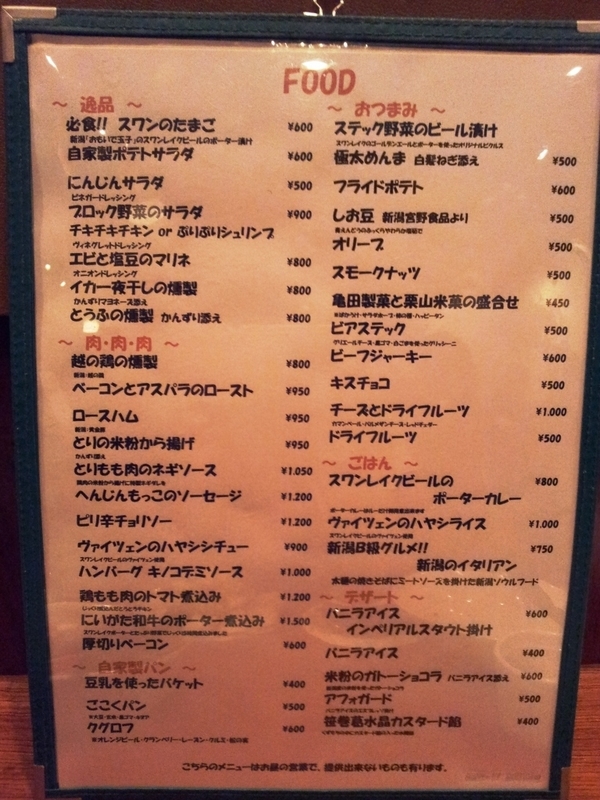 FOOD
～ 逸品 ～
必食!! スワンのたまご ¥600
新潟「おもいで玉子」のスワンレイクビールのポーター漬け
自家製ポテトサラダ ¥600
にんじんサラダ ¥500
ビネガードレッシング
ブロック野菜のサラダ ¥900
チキチキチキン or ぷりぷりシュリンプ
ヴィネグレットドレッシング
エビと塩豆のマリネ ¥800
オニオンドレッシング
イカ一夜干しの燻製 ¥800
かんずりマヨネーズ添え
とうふの燻製 かんずり添え ¥800
～ 肉・肉・肉 ～
越の鶏の燻製 ¥800
ベーコンとアスパラのロースト ¥950
ロースハム ¥950
とりの米粉から揚げ ¥950
かんずり添え
とりもも肉のネギソース ¥1.050
へんじんもっこのソーセージ ¥1.200
ピリ辛チョリソー ¥1.200
ヴァイツェンのハヤシシチュー ¥900
スワンレイクビールのヴァイツェン使用
ハンバーグ キノコデミソース ¥1.000
鶏もも肉のトマト煮込み ¥1.200
にいがた和牛のポーター煮込み ¥1.500
厚切りベーコン ¥600
～ 自家製パン ～
豆乳を使ったバケット ¥400
ごこくパン ¥500
クグロフ ¥600
※オレンジピール・クランベリー・レーズン・クルミ・松の実
～ おつまみ ～
ステック野菜のビール漬け
スワンレイクのゴールデンエールとポーターを使ったオリジナルピクルス
極太めんま 白髪ねぎ添え ¥500
フライドポテト ¥600
しお豆 新潟宮野食品より ¥500
青えんどうのふっくらやわらか塩茹で
オリーブ ¥500
スモークナッツ ¥500
亀田製菓と栗山米菓の盛合せ ¥450
※ばかうけ・サラダホープ・柿の種・ハッピーターン
ビアステック ¥500
ビーフジャーキー ¥600
キスチョコ ¥500
チーズとドライフルーツ ¥1.000
カマンベール・パルメザンチーズ・レッドチェダー
ドライフルーツ ¥500
～ ごはん ～
スワンレイクビールの ¥800
ポーターカレー
ヴァイツェンのハヤシライス ¥1.000
スワンレイクビールのヴァイツェン使用
新潟B級グルメ!! ¥750
新潟のイタリアン
太麺の焼きそばにミートソースを掛けた新潟ソウルフード
～ デザート ～
バニラアイス ¥600
インペリアルスタウト掛け
バニラアイス ¥400
米粉のガトーショコラ バニラアイス添え ¥600
アフォガード ¥500
バニラアイスのエスプレッソ掛け
笹巻葛水晶カスタード餡 ¥400
こちらのメニューはお昼の営業で、提供出来ないものも有ります。